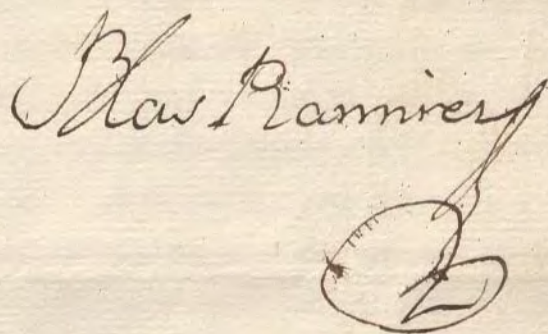 Blas Ramirez